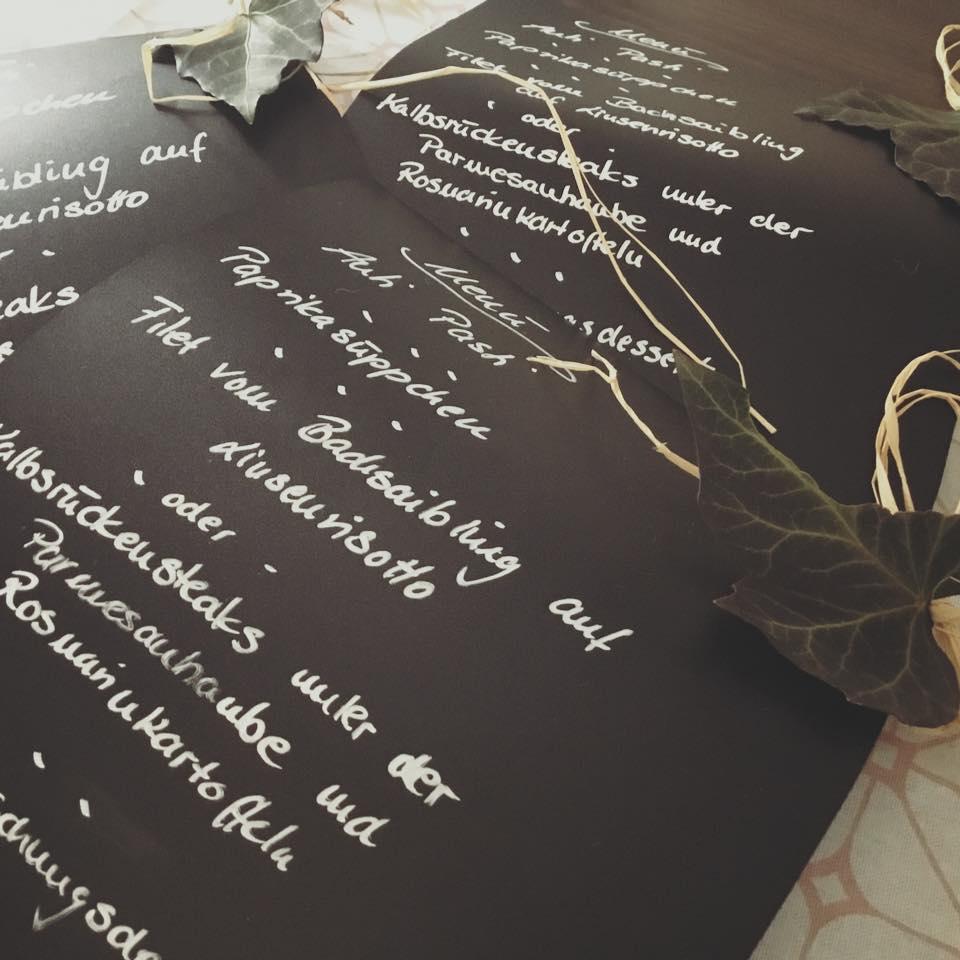 pchen
ibling auf
enrisotto
eaks
Menü
Anti Pasti
Paprikasüppchen
Filet vom Bachsaibling
auf Linsenrisotto
- oder -
Kalbsrückensteaks unter der
Parmesanhaube und
Rosmarinkartoffeln
sdessert
Menü
Anti Pasti
Paprikasüppchen
Filet vom Bachsaibling auf
Linsenrisotto
- oder -
Kalbsrückensteaks unter der
Parmesanhaube und
Rosmarinkartoffeln
schungsde